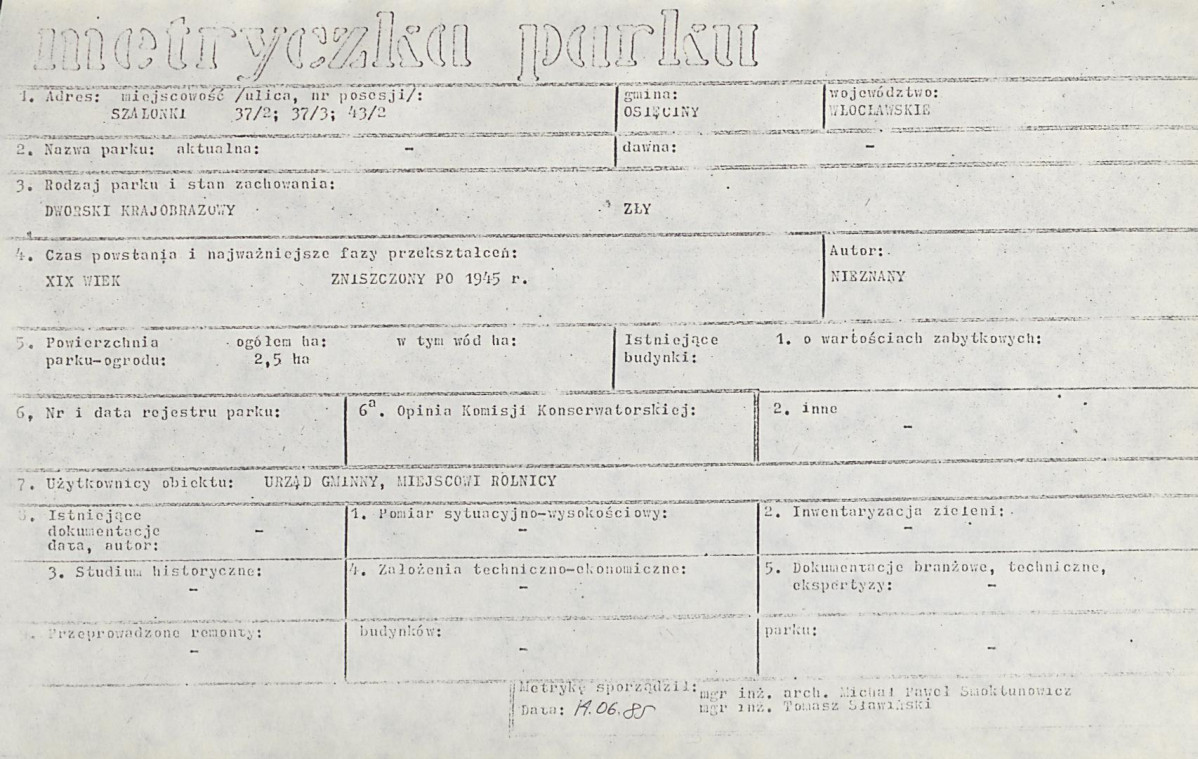 metryczka parku
1. Adres: miejscowość /ulica, nr posesji/:
SZALONKI 37/2; 37/3; 43/2
gmina:
OSIĘCINY
województwo:
WŁOCŁAWSKIE
2. Nazwa parku: aktualna: -
dawna: -
3. Rodzaj parku i stan zachowania:
DWORSKI KRAJOBRAZOWY ZŁY
4. Czas powstania i najważniejsze fazy przekształceń:
XIX WIEK ZNISZCZONY PO 1945 r.
Autor:
NIEZNANY
5. Powierzchnia ogółem ha: w tym wód ha:
parku-ogrodu: 2,5 ha
Istniejące 1. o wartościach zabytkowych:
budynki:
6, Nr i data rejestru parku:
6a. Opinia Komisji Konserwatorskiej:
2. inne
-
7. Użytkownicy obiektu: URZĄD GMINNY, MIEJSCOWI ROLNICY
8. Istniejące
dokumentacje -
data, autor:
1. Pomiar sytuacyjno-wysokościowy:
-
2. Inwentaryzacja zieleni:
-
3. Studium historyczne:
-
4. Założenia techniczno-ekonomiczne:
-
5. Dokumentacje branżowe, techniczne,
ekspertyzy: -
Przeprowadzone remonty:
-
budynków:
-
parku:
-
Metrykę sporządził: mgr inż. arch. Michał Paweł Smoktunowicz
Data: 14.06.85 mgr inż. Tomasz Sławiński